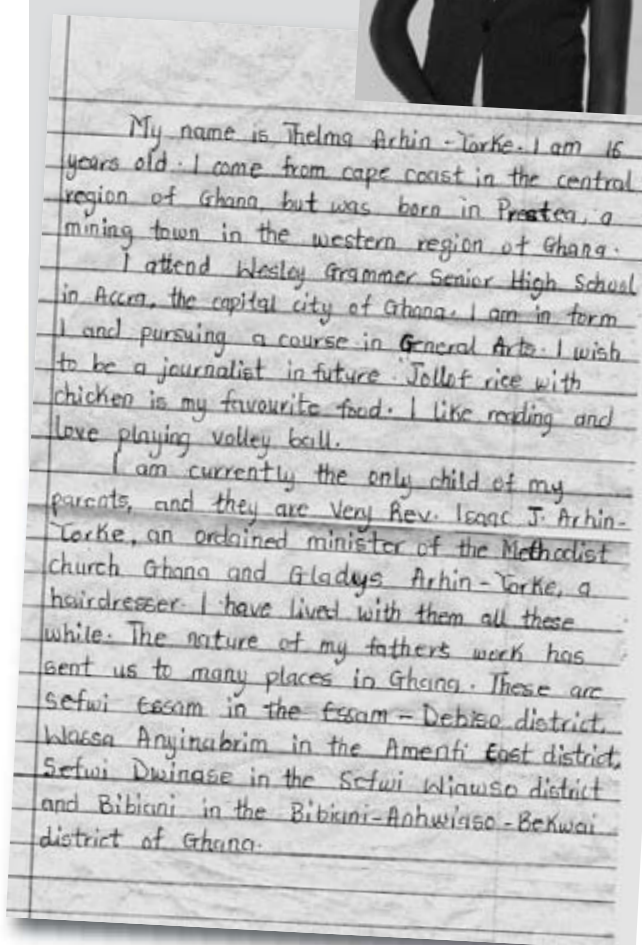 My name is Thelma Arhin-Yorke. I am 16
years old. I come from cape coast in the central
region of Ghana but was born in Prestea, a
mining town in the western region of Ghana.
I attend Wesley Grammer Senior High School
in Accra, the capital city of Ghana. I am in form
1 and pursuing a course in General Arts. I wish
to be a journalist in future. Jollof rice with
chicken is my favourite food. I like reading and
love playing volley ball.
I am currently the only child of my
parents, and they are Very Rev. Isaac J. Arhin-
Yorke, an ordained minister of the Methodist
church Ghana and Gladys Arhin-Yorke, a
hairdresser. I have lived with them all these
while. The nature of my fathers work has
sent us to many places in Ghana. These are
Sefwi Essam in the Essam-Debiso district,
Wassa Anyinabrim in the Amenfi East district,
Sefwi Dwinase in the Sefwi Wiawso district
and Bibiani in the Bibiani-Anhwiaso-Bekwai
district of Ghana.